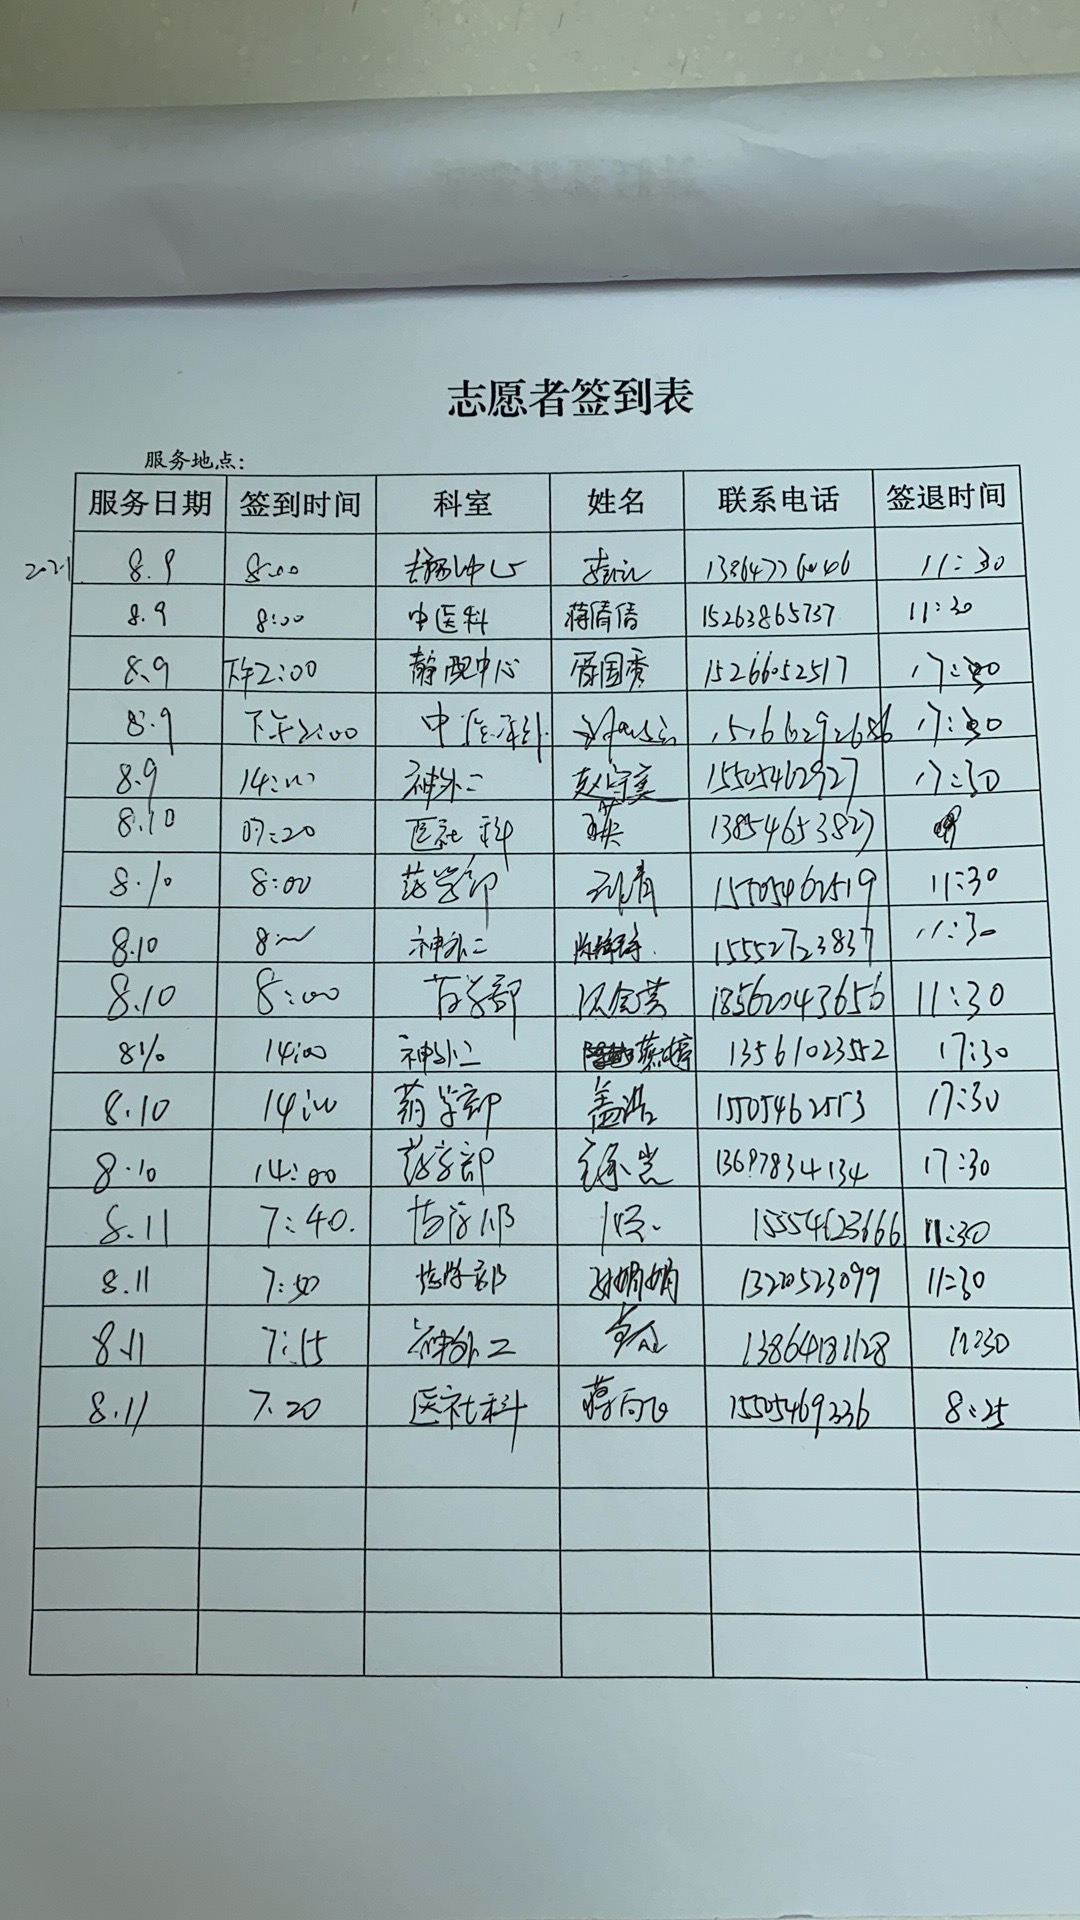 志愿者签到表
服务地点:
服务日期 签到时间 科室 姓名 联系电话 签退时间
2021 8.9 8:00 中心 13864776046 11:30
8.9 8:00 中医科 蒋倩倩 15263865737 11:30
8.9 下午2:00 静配中心 国秀 15266052517 17:30
8.9 下午2:00 15166292686 17:30
8.9 14:00 神外二 15505462927 17:30
8.10 07:20 医社科 13854653827
8.10 8:00 药学部 15505462519 11:30
8.10 8:00 神外二 15552723837 11:30
8.10 8:00 药学部 18562043656 11:30
8.10 14:00 神外二 13561023552 17:30
8.10 14:00 药学部 盖浩 15505462553 17:30
8.10 14:00 药学部 13697834134 17:30
8.11 7:40 药学部 15554623666 11:30
8.11 7:50 药学部 孙娟娟 13220523099 11:30
8.11 7:15 神外二 13864181128 11:30
8.11 7:20 医社科 蒋向飞 15505469336 8:25